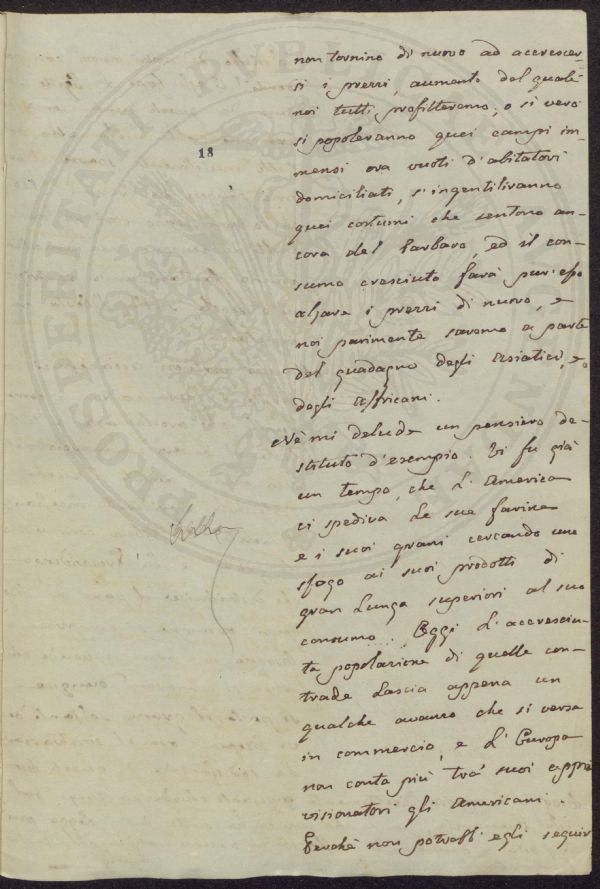 non tornino di nuovo ad accrescer-
si i prezzi, aumento del quale
noi tutti profitteremo; o si vero
18
si popoleranno quei campi im-
mensi ora vuoti d'abitatori
domiciliati, s'ingentiliranno
quei costumi che sentono an-
cora del barbaro, ed il con-
sumo cresciuto farà pur'esso
alzare i prezzi di nuovo, e
noi parimente saremo a parte
del guadagno degli Asiatici, e
degli Affricani.
Nè mi delude un pensiero de-
stituto d'esempio. Vi fu già
un tempo, che l'America
ci spediva le sue farine
e i suoi grani cercando uno
sfogo ai suoi prodotti di
gran lunga superiori al suo
consumo. Oggi l'accresciu-
ta popolazione di quelle con-
trade lascia appena un
qualche avanzo che si versa
in commercio, e l'Europa
non conta più tra' suoi appro
visionatori gli Americani.
Perchè non potrebb'egli seguir